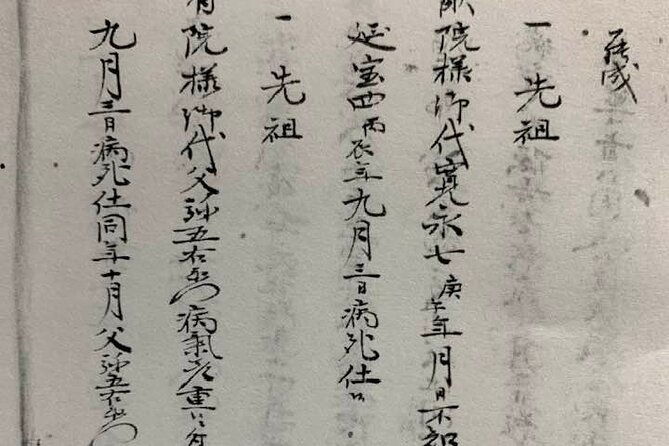 一 先祖
院様御代寛永七庚午年月日不
延宝四丙辰年九月三日病死仕候
一 先祖
院様御代父弥五右衛門病氣差重
九月三日病死仕同年十月父弥五右衛門